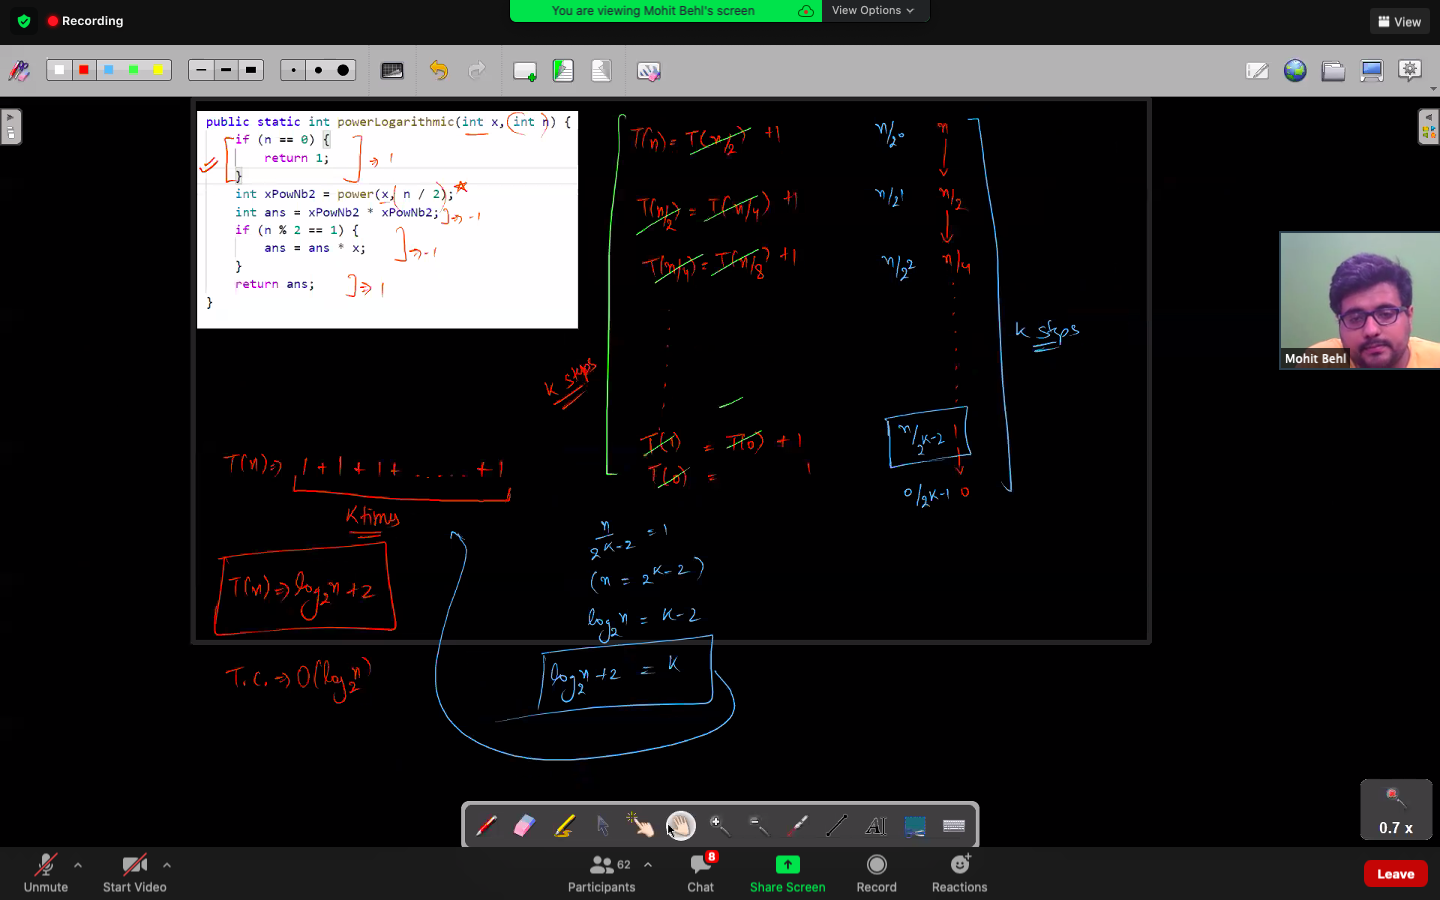 Recording
You are viewing Mohit Behl's screen
View Options
View
public static int powerLogarithmic(int x, int n) {
if (n == 0) {
return 1;
}
⇒ 1
int xPowNb2 = power(x, n / 2);
int ans = xPowNb2 * xPowNb2;
⇒ 1
if (n % 2 == 1) {
ans = ans * x;
}
⇒ 1
return ans;
⇒ 1
}
T(n) = T(n/2) + 1
T(n/2) = T(n/4) + 1
T(n/4) = T(n/8) + 1
T(1) = T(0) + 1
T(0) = 1
K steps
n/2⁰ n
n/2¹ n/2
n/2² n/4
n/2K-2 1
0/2K-1 0
K steps
T(n) ⇒ 1 + 1 + 1 + ...... + 1
K times
T(n) ⇒ log₂n + 2
T.C. ⇒ O(log₂n)
n/2^K-2 = 1
(n = 2^K-2)
log₂n = K-2
log₂n + 2 = K
Mohit Behl
0.7 x
Unmute
Start Video
62
Participants
8
Chat
Share Screen
Record
Reactions
Leave